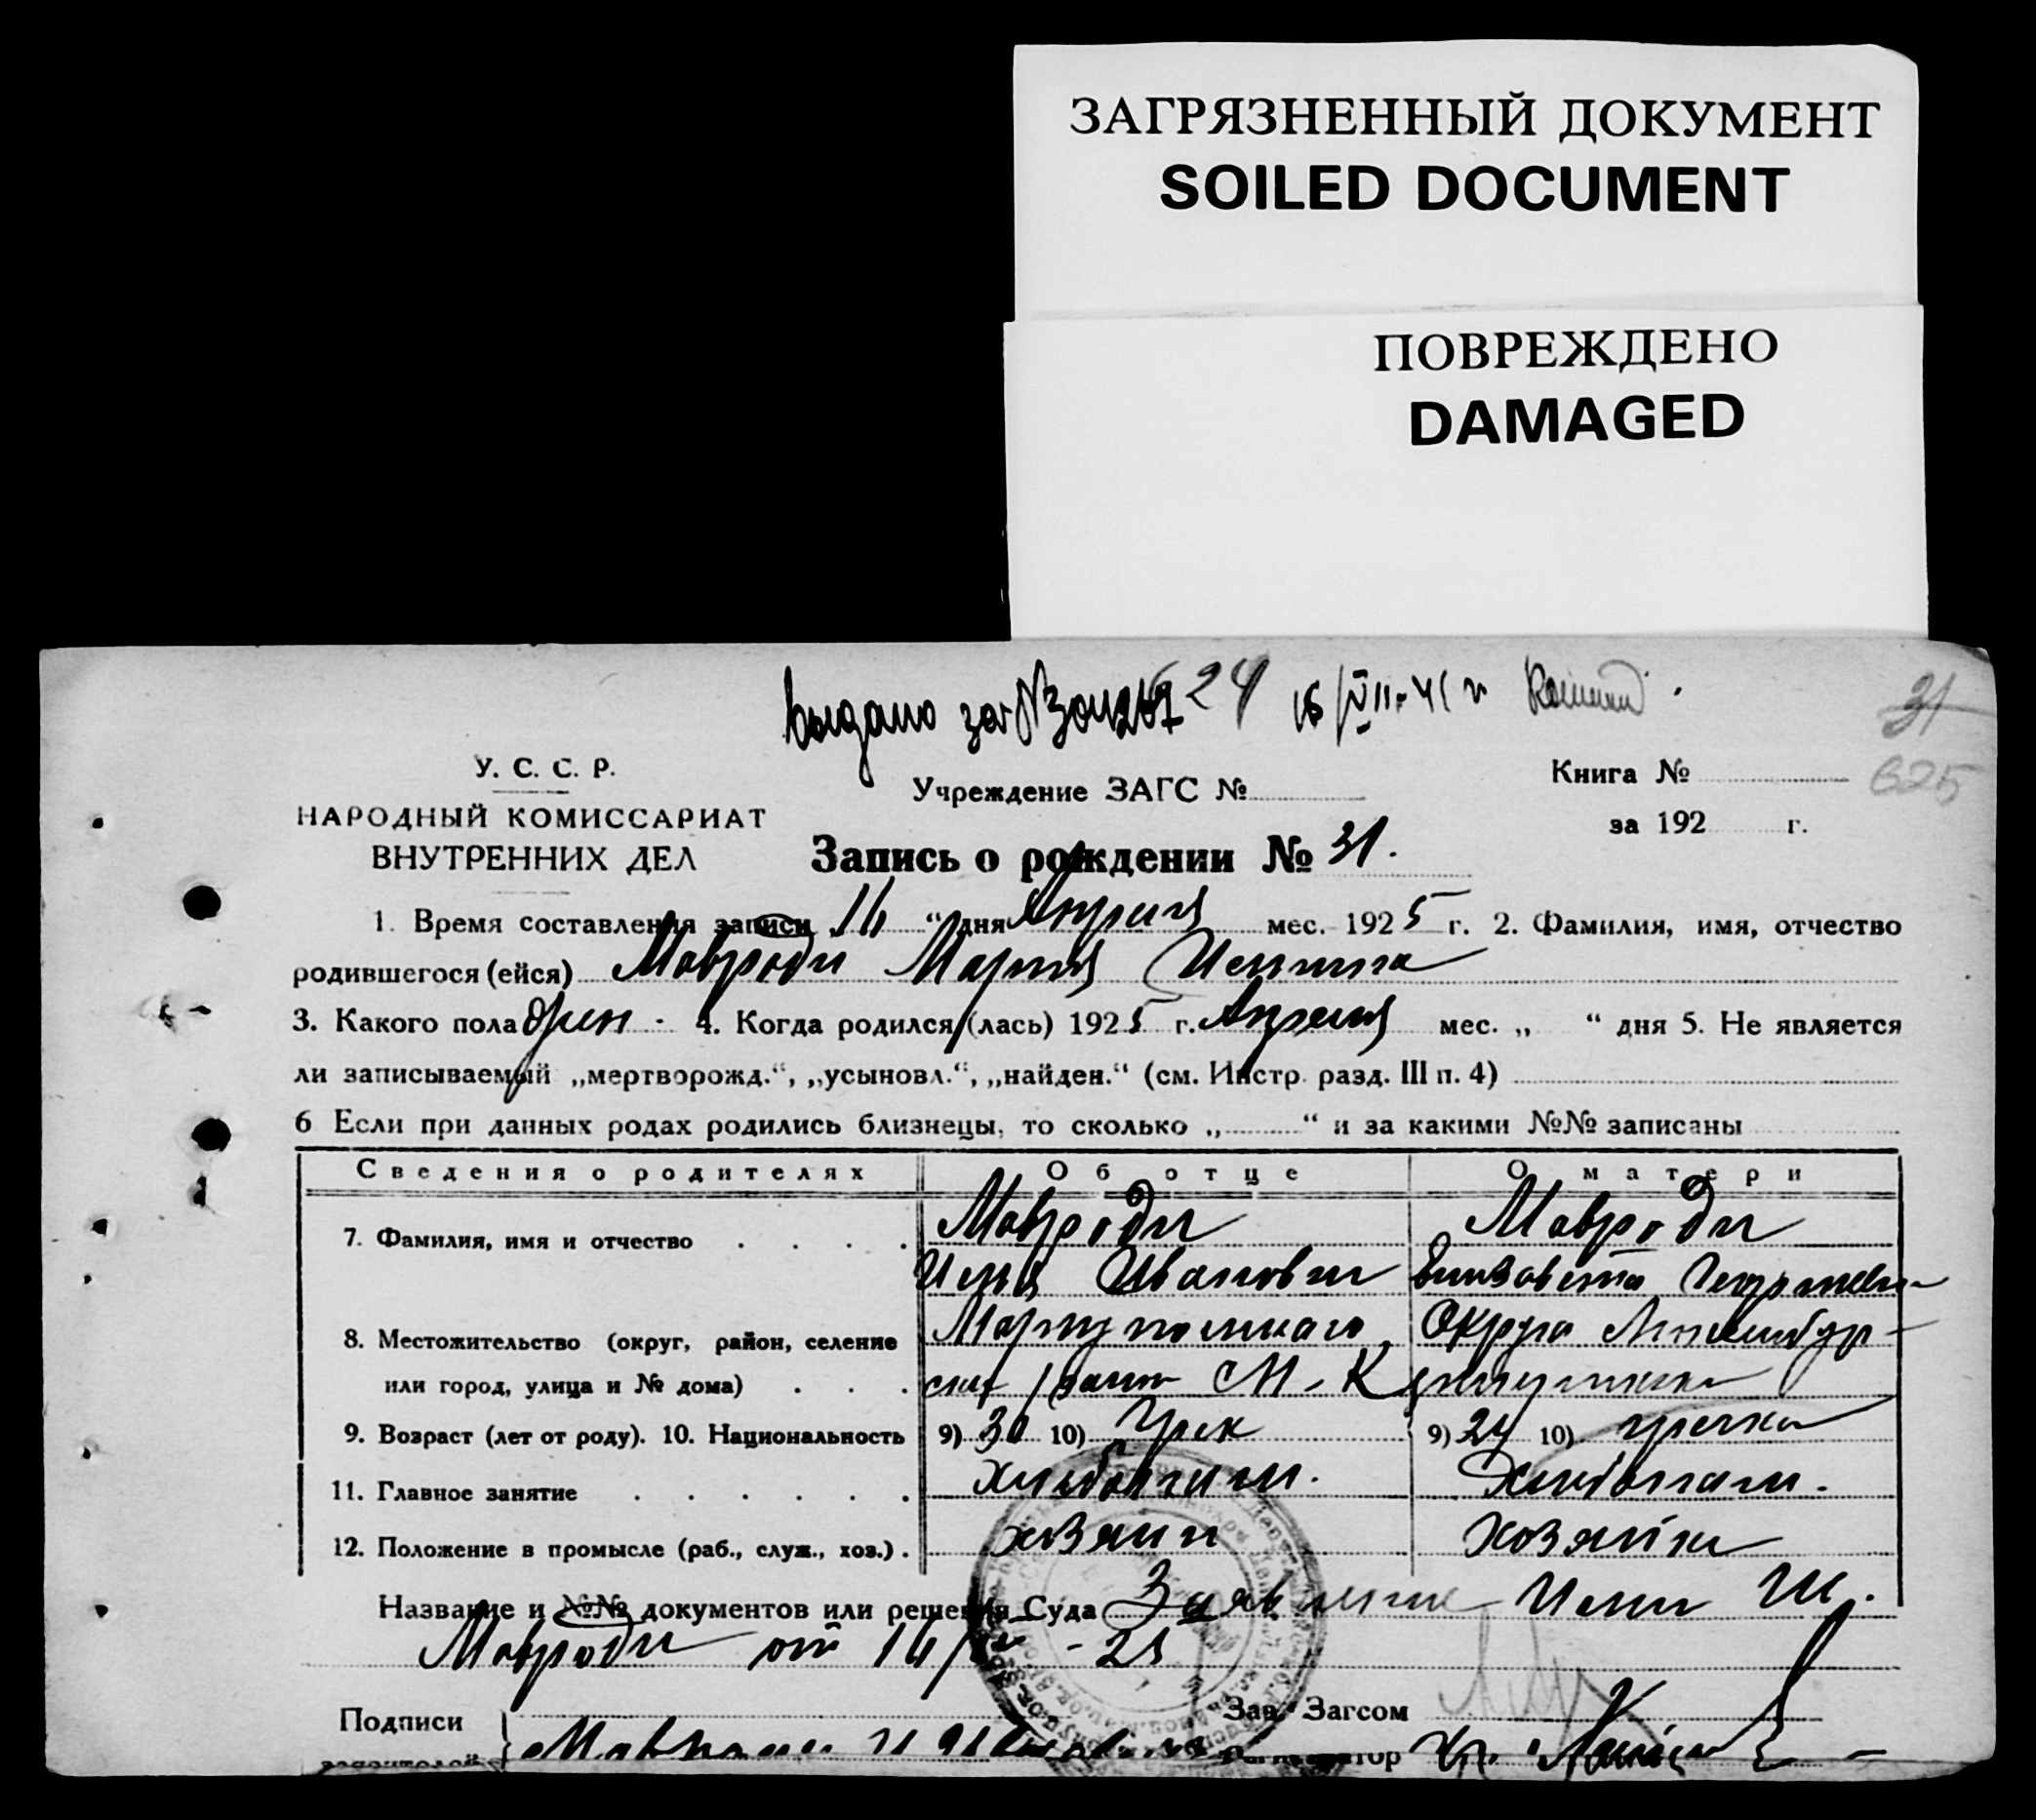 ЗАГРЯЗНЕННЫЙ ДОКУМЕНТ
SOILED DOCUMENT
ПОВРЕЖДЕНО
DAMAGED
выдано 24 16/VII-41 г
31
625
У. С. С. Р.
НАРОДНЫЙ КОМИССАРИАТ
ВНУТРЕННИХ ДЕЛ
Учреждение ЗАГС №
Книга №
за 192 г.
Запись о рождении № 31.
1. Время составления записи „ 14 “ дня Апреля мес. 1925 г. 2. Фамилия, имя, отчество
родившегося (ейся) Мавроди Мария
3. Какого пола жен. 4. Когда родился/(лась) 1925 г. Апреля мес. „ “ дня 5. Не является
ли записываемый „мертворожд.“, „усыновл.“, „найден.“ (см. Инстр. разд. III п. 4)
6 Если при данных родах родились близнецы, то сколько „ “ и за какими №№ записаны
Сведения о родителях Об отце О матери
7. Фамилия, имя и отчество Мавроди Мавроди
Илья Иванович Елизавета
8. Местожительство (округ, район, селение Мариупольского Округа
или город, улица и № дома) М-
9. Возраст (лет от роду). 10. Национальность 9) 30 10) Грек 9) 24 10) гречка
11. Главное занятие хлебопаш. Хлебопаш.
12. Положение в промысле (раб., служ., хоз.) хозяин хозяйка
Название и №№ документов или решения Суда Заявление Ильи
Мавроди от 14/ - 25
Подписи Зав. Загсом
заявителей Регистратор